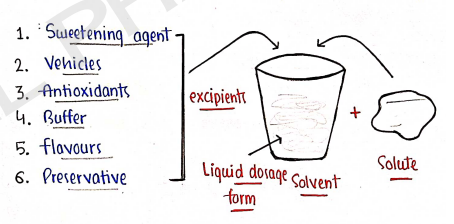 1. Sweetening agent
2. Vehicles
3. Antioxidants
4. Buffer
5. flavours
6. Preservative
excipients
+
Liquid dosage form
Solvent
Solute